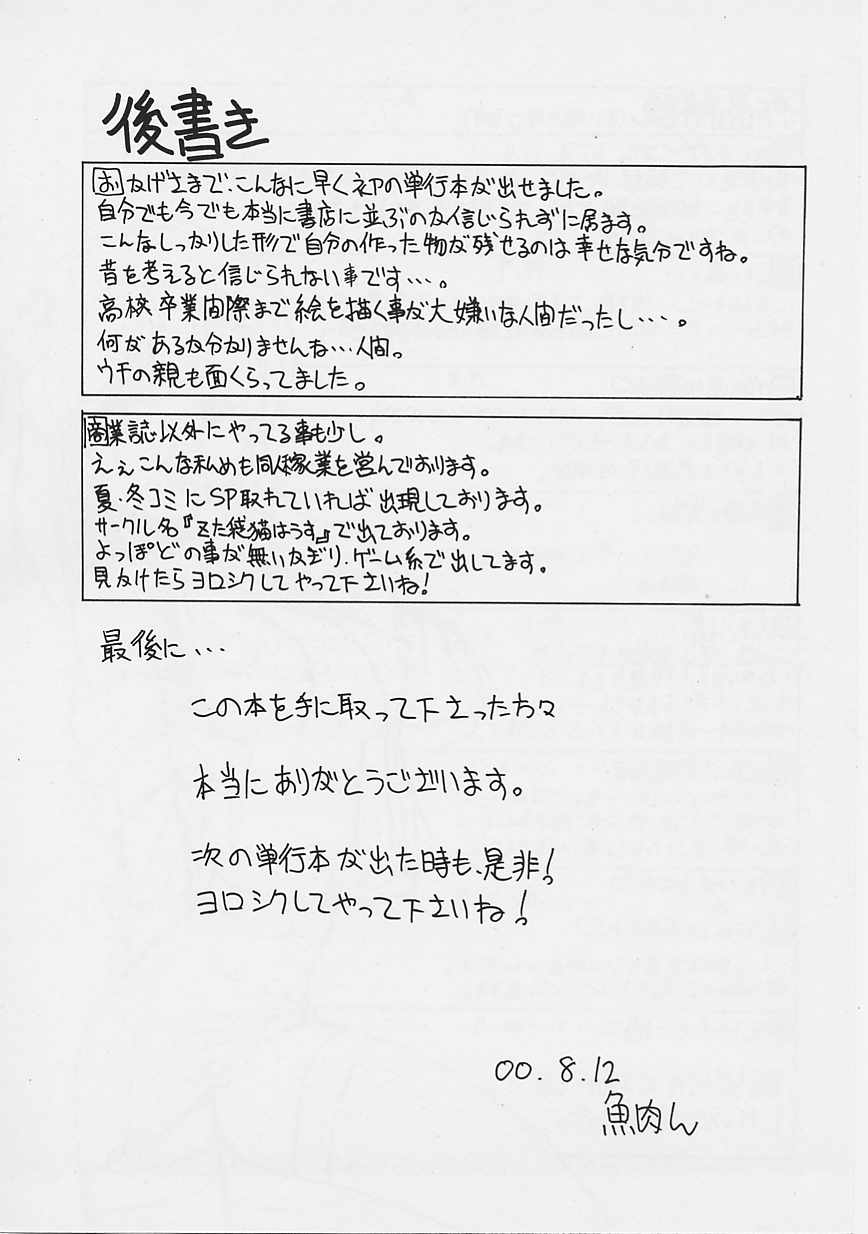 後書き
おかげさまで、こんなに早く初の単行本が出せました。
自分でも今でも本当に書店に並ぶのか信じられずに居ます。
こんなしっかりした形で自分の作った物が残せるのは幸せな気分ですね。
昔を考えると信じられない事です…。
高校卒業間際まで絵を描く事が大嫌いな人間だったし…。
何があるか分かりませんね…人間。
ウチの親も面くらってました。
商業誌以外にやってる事も少し。
えぇこんな私めも同人稼業を営んでおります。
夏・冬コミにSP取れていれば出現しております。
サークル名『Zた袋猫はうす』で出ております。
よっぽどの事が無いかぎり、ゲーム系で出してます。
見かけたらヨロシクしてやって下さいね!
最後に…
この本を手に取って下さった方々
本当にありがとうございます。
次の単行本が出た時も、是非!
ヨロシクしてやって下さいね!
00.8.12
魚肉ん